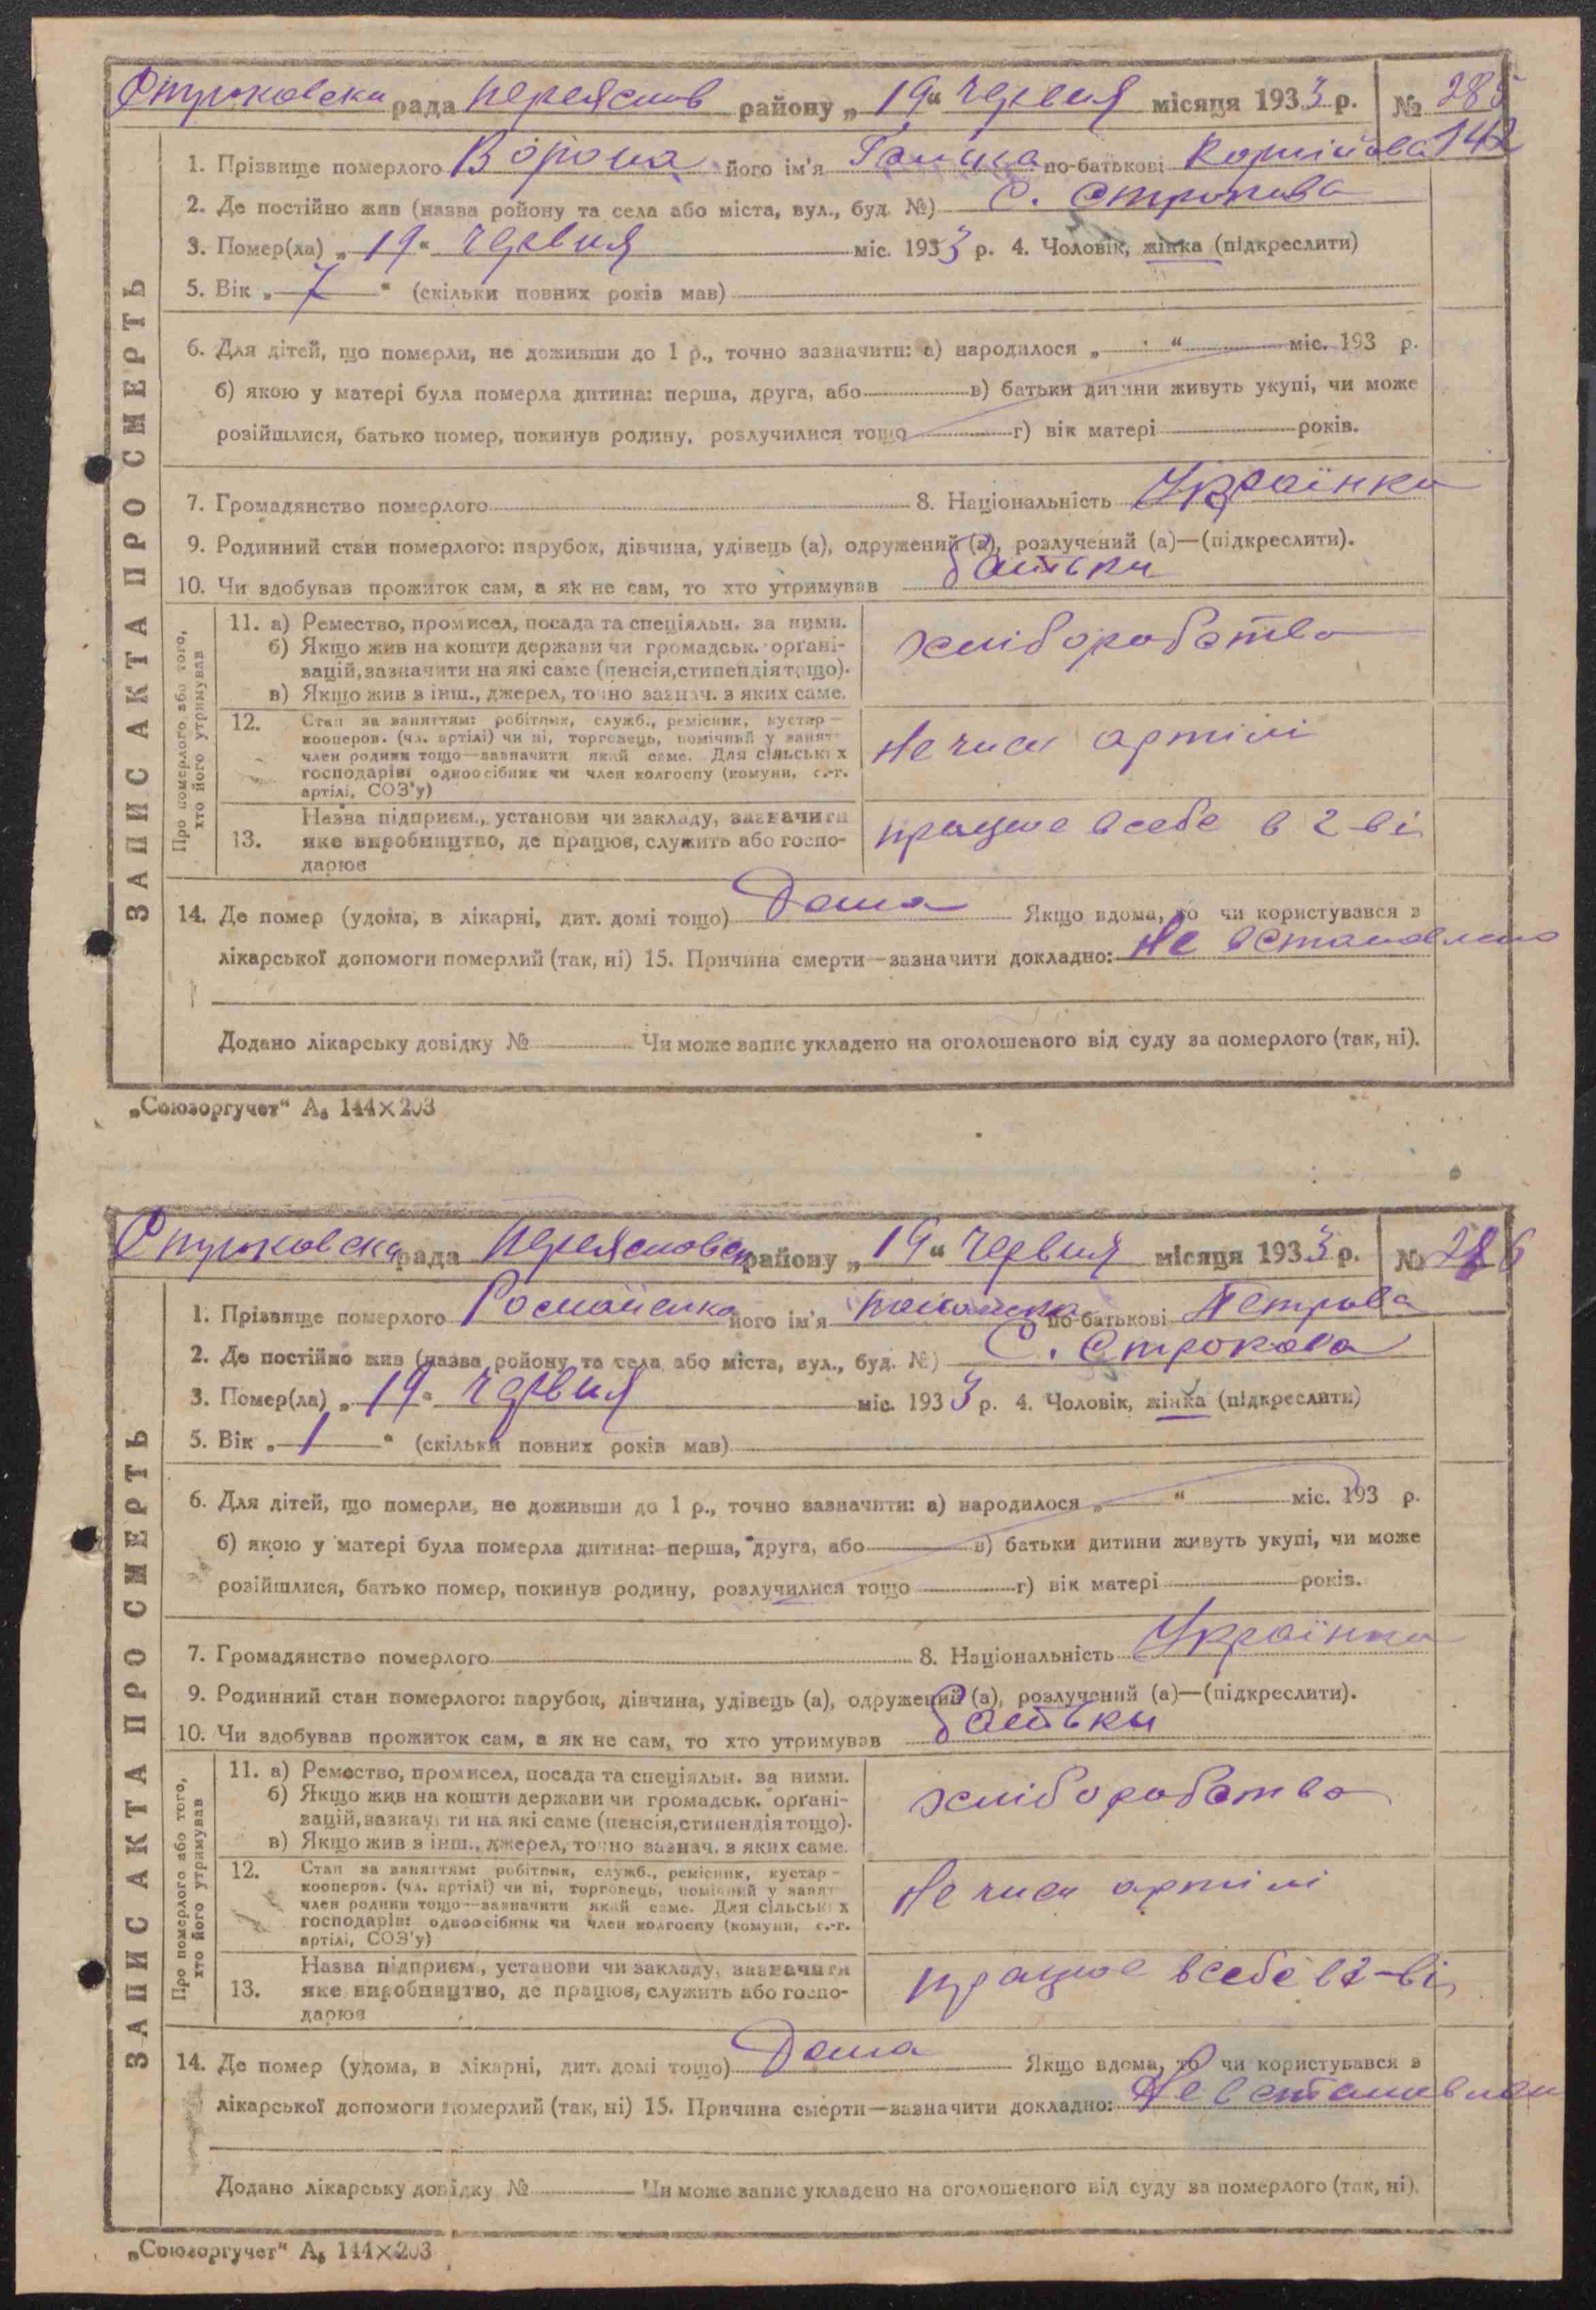 Строковска рада Переяслов району „19“ червня місяця 1933 р. № 285
142
1. Прізвище померлого Ворона його ім'я Галька по-батькові Корнійова
2. Де постійно жив (назва ройону та села або міста, вул., буд. №) С. Строкова
3. Помер(ла) „19“ червня міс. 1933 р. 4. Чоловік, жінка (підкреслити)
5. Вік „7“ (скільки повних років мав)
6. Для дітей, що померли, не доживши до 1 р., точно зазначити: а) народилося „ “ міс. 193 р.
б) якою у матері була померла дитина: перша, друга, або в) батьки дитини живуть укупі, чи може
розійшлися, батько помер, покинув родину, розлучилися тощо г) вік матері років.
7. Громадянство померлого 8. Національність Українка
9. Родинний стан померлого: парубок, дівчина, удівець (а), одружений (а), розлучений (а)—(підкреслити).
10. Чи здобував прожиток сам, а як не сам, то хто утримував батьки
ЗАПИС АКТА ПРО СМЕРТЬ
Про померлого або того, хто його утримував
11. а) Ремество, промисел, посада та спеціяльн. за ними.
б) Якщо жив на кошти держави чи громадськ. органі-
зацій, зазначити на які саме (пенсія, стипендія тощо).
в) Якщо жив з інш., джерел, точно зазнач. з яких саме.
хліборобство
12. Стан за заняттям: робітник, служб., ремісник, кустар—
кооперов. (чл. артілі) чи ні, торговець, помічний у занят-
член родини тощо—зазначити який саме. Для сільських
господарів: одноосібник чи член колгоспу (комуни, с.-г.
артілі, СОЗ'у)
Не член артілі
13. Назва підприєм., установи чи закладу, зазначити
яке виробництво, де працює, служить або госпо-
дарює
працює в себе в г-ві
14. Де помер (удома, в лікарні, дит. домі тощо) Дома Якщо вдома, то чи користувався з
лікарської допомоги померлий (так, ні) 15. Причина смерти—зазначити докладно: Не встановлено
Додано лікарську довідку № Чи може запис укладено на оголошеного від суду за померлого (так, ні).
„Союзоргучет“ А₅ 144×203
Строковска рада Переясловск району „19“ червня місяця 1933 р. № 286
1. Прізвище померлого його ім'я по-батькові Петрова
2. Де постійно жив (назва ройону та села або міста, вул., буд. №) С. Строкова
3. Помер(ла) „19“ червня міс. 1933 р. 4. Чоловік, жінка (підкреслити)
5. Вік „1“ (скільки повних років мав)
6. Для дітей, що померли, не доживши до 1 р., точно зазначити: а) народилося „ “ міс. 193 р.
б) якою у матері була померла дитина: перша, друга, або в) батьки дитини живуть укупі, чи може
розійшлися, батько помер, покинув родину, розлучилися тощо г) вік матері років.
7. Громадянство померлого 8. Національність Українка
9. Родинний стан померлого: парубок, дівчина, удівець (а), одружений (а), розлучений (а)—(підкреслити).
10. Чи здобував прожиток сам, а як не сам, то хто утримував батьки
ЗАПИС АКТА ПРО СМЕРТЬ
Про померлого або того, хто його утримував
11. а) Ремество, промисел, посада та спеціяльн. за ними.
б) Якщо жив на кошти держави чи громадськ. органі-
зацій, зазначити на які саме (пенсія, стипендія тощо).
в) Якщо жив з інш., джерел, точно зазнач. з яких саме.
хліборобство
12. Стан за заняттям: робітник, служб., ремісник, кустар—
кооперов. (чл. артілі) чи ні, торговець, помічний у занят-
член родини тощо—зазначити який саме. Для сільських
господарів: одноосібник чи член колгоспу (комуни, с.-г.
артілі, СОЗ'у)
Не член артілі
13. Назва підприєм., установи чи закладу, зазначити
яке виробництво, де працює, служить або госпо-
дарює
працює в себе в г-ві
14. Де помер (удома, в лікарні, дит. домі тощо) Дома Якщо вдома, то чи користувався з
лікарської допомоги померлий (так, ні) 15. Причина смерти—зазначити докладно: Не встановлен
Додано лікарську довідку № Чи може запис укладено на оголошеного від суду за померлого (так, ні).
„Союзоргучет“ А₅ 144×203